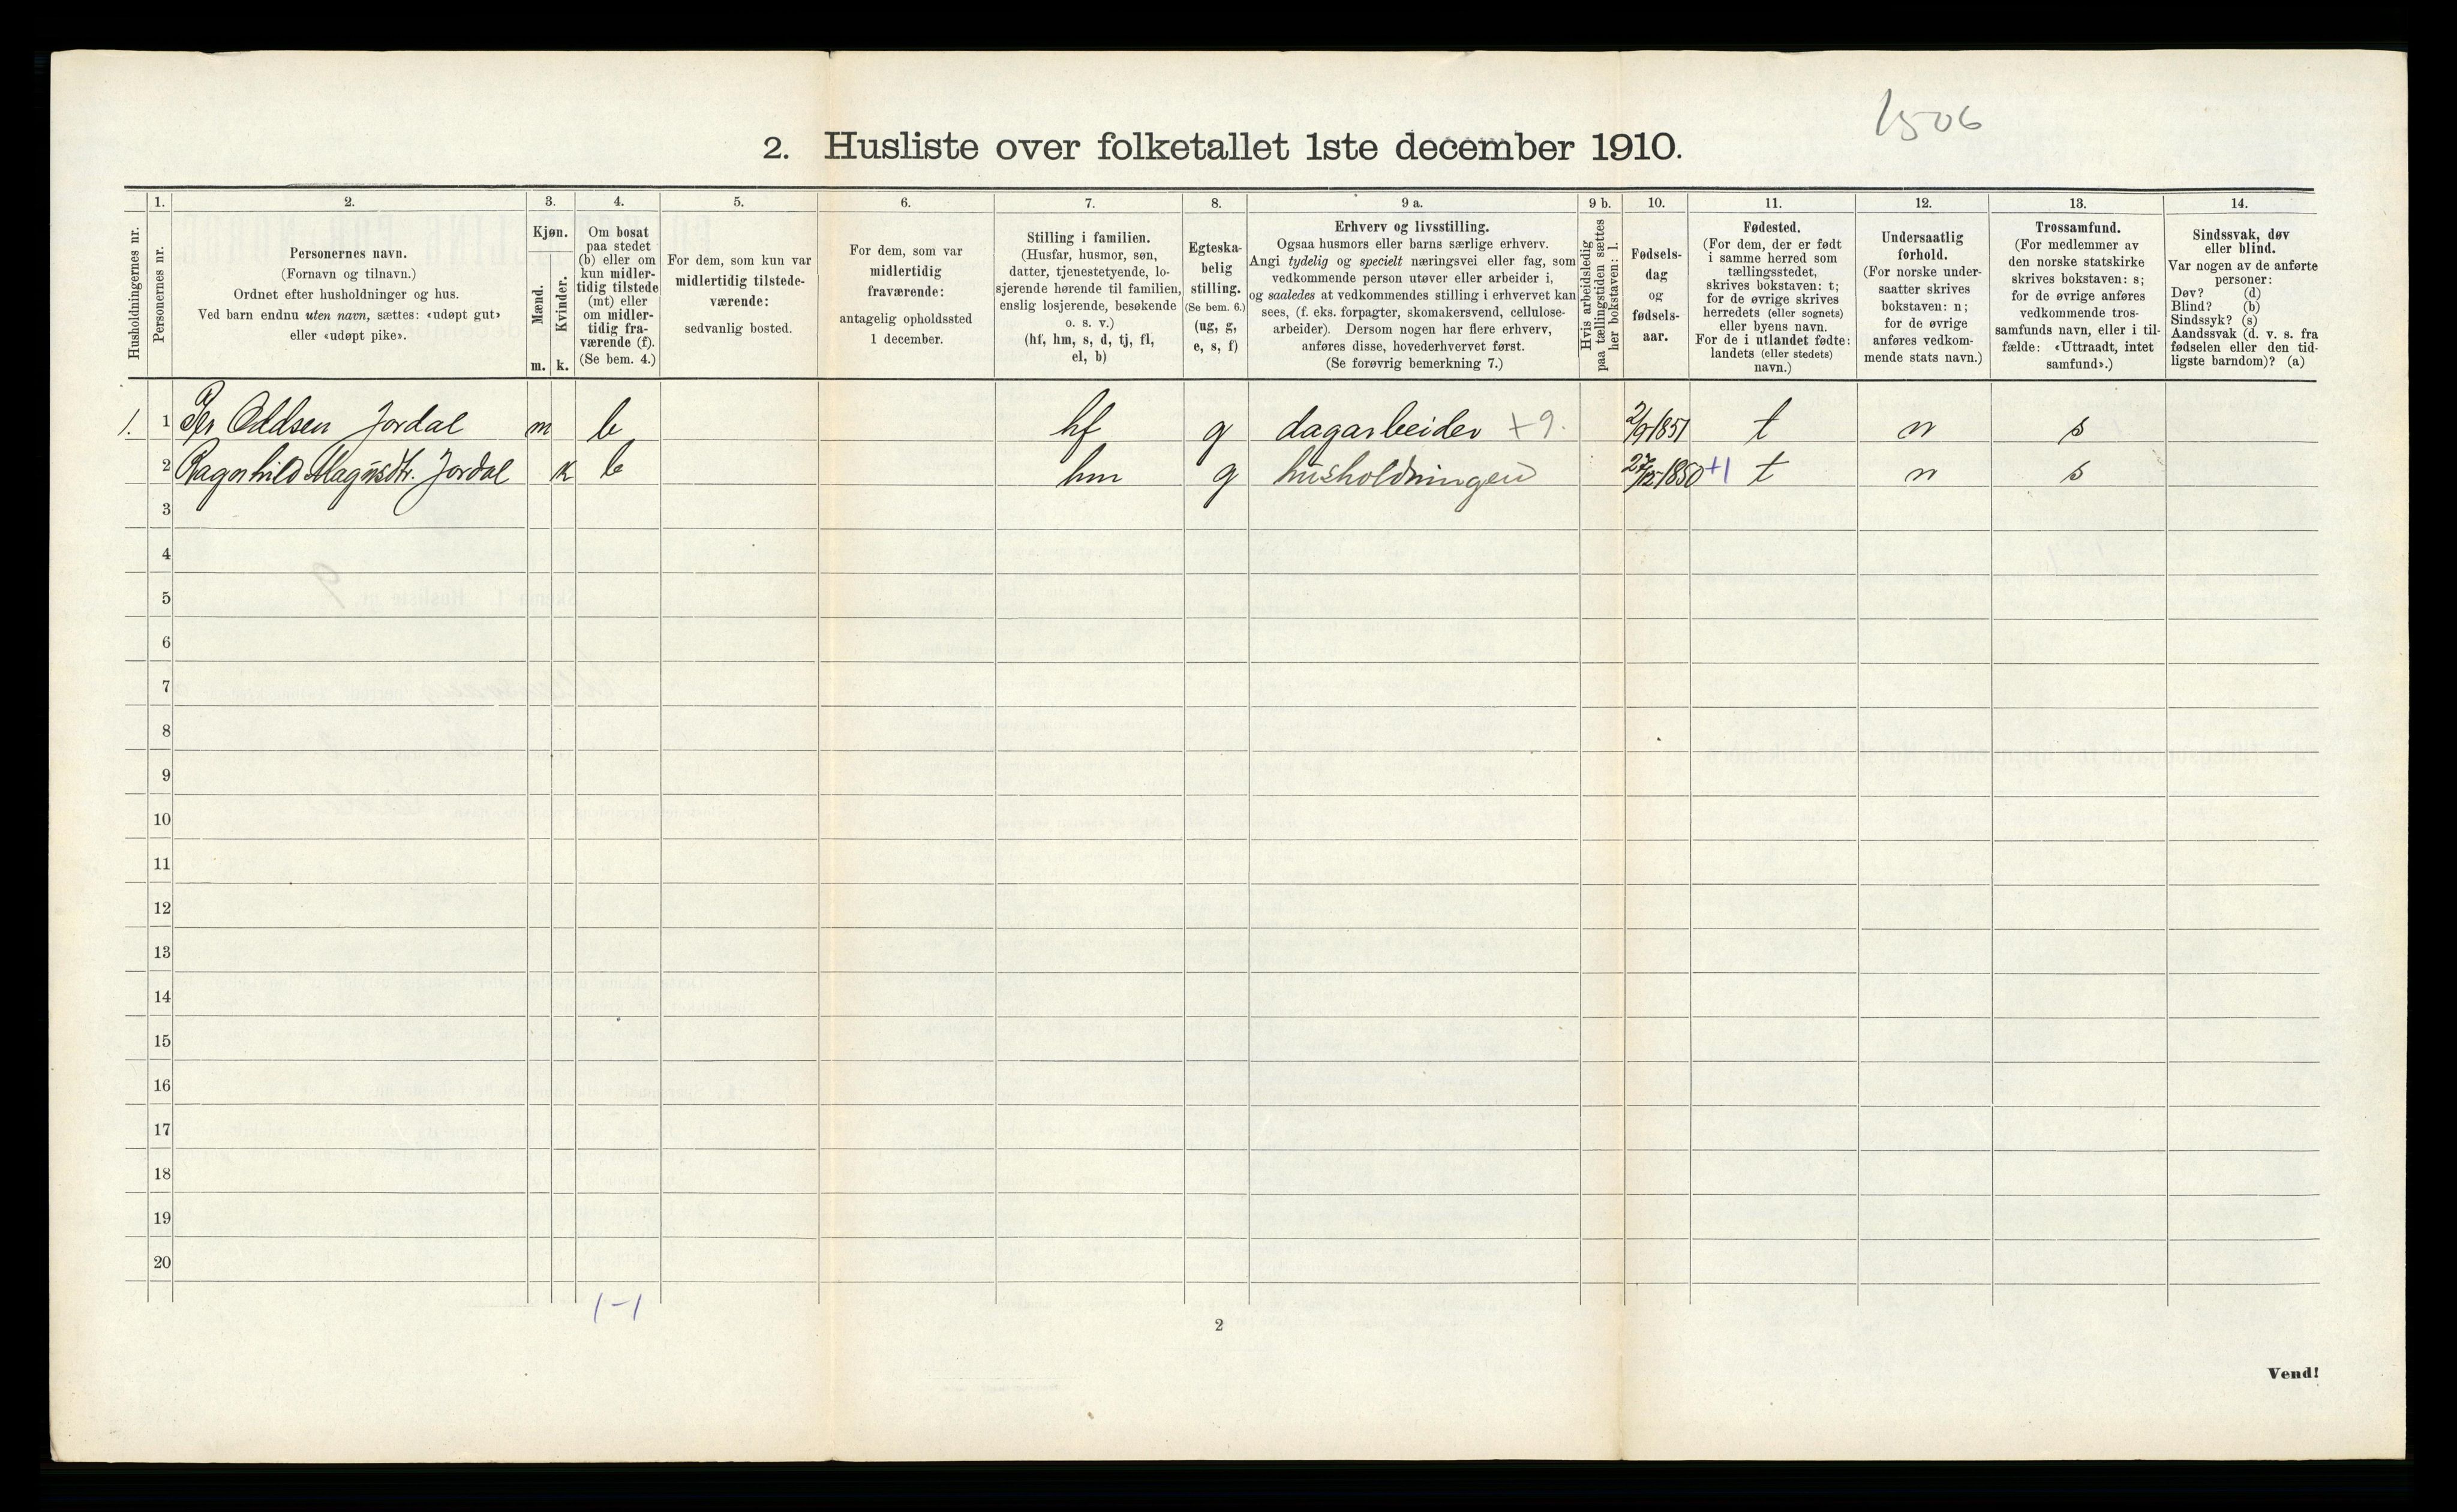 1506
2. Husliste over folketallet 1ste december 1910.
Husholdningernes nr.
1.
Personernes nr.
2.
Personernes navn.
(Fornavn og tilnavn.)
Ordnet efter husholdninger og hus.
Ved barn endnu uten navn, sættes: «udøpt gut»
eller «udøpt pike».
3.
Kjøn.
Mænd.
m.
Kvinder.
k.
4.
Om bosat
paa stedet
(b) eller om
kun midler-
tidig tilstede
(mt) eller
om midler-
tidig fra-
værende (f).
(Se bem. 4.)
5.
For dem, som kun var
midlertidig tilstede-
værende:
sedvanlig bosted.
6.
For dem, som var
midlertidig
fraværende:
antagelig opholdssted
1 december.
7.
Stilling i familien.
(Husfar, husmor, søn,
datter, tjenestetyende, lo-
sjerende hørende til familien,
enslig losjerende, besøkende
o. s. v.)
(hf, hm, s, d, tj, fl,
el, b)
8.
Egteska-
belig
stilling.
(Se bem. 6.)
(ug, g,
e, s, f)
9 a.
Erhverv og livsstilling.
Ogsaa husmors eller barns særlige erhverv.
Angi tydelig og specielt næringsvei eller fag, som
vedkommende person utøver eller arbeider i,
og saaledes at vedkommendes stilling i erhvervet kan
sees, (f. eks. forpagter, skomakersvend, cellulose-
arbeider). Dersom nogen har flere erhverv,
anføres disse, hovederhvervet først.
(Se forøvrig bemerkning 7.)
9 b.
Hvis arbeidsledig
paa tællingstiden sættes
her bokstaven: l.
10.
Fødsels-
dag
og
fødsels-
aar.
11.
Fødested.
(For dem, der er født
i samme herred som
tællingsstedet,
skrives bokstaven: t;
for de øvrige skrives
herredets (eller sognets)
eller byens navn.
For de i utlandet fødte:
landets (eller stedets)
navn.)
12.
Undersaatlig
forhold.
(For norske under-
saatter skrives
bokstaven: n;
for de øvrige
anføres vedkom-
mende stats navn.)
13.
Trossamfund.
(For medlemmer av
den norske statskirke
skrives bokstaven: s;
for de øvrige anføres
vedkommende tros-
samfunds navn, eller i til-
fælde: «Uttraadt, intet
samfund».)
14.
Sindssvak, døv
eller blind.
Var nogen av de anførte
personer:
Døv? (d)
Blind? (b)
Sindssyk? (s)
Aandssvak (d. v. s. fra
fødselen eller den tid-
ligste barndom)? (a)
1. 1 Per Oddsen Jordal m b hf g dagarbeider +9. 2/9 1851 t n s
2 Ragnhild Magnsdtr. Jordal k b hm g husholdningen 27/12 1850 +1 t n s
3
4
5
6
7
8
9
10
11
12
13
14
15
16
17
18
19
20
1-1
2
Vend!